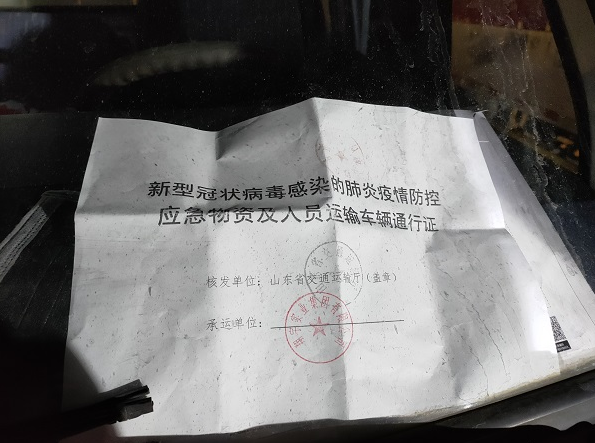 新型冠状病毒感染的肺炎疫情防控
应急物资及人员运输车辆通行证
核发单位：山东省交通运输厅（盖章）
承运单位：